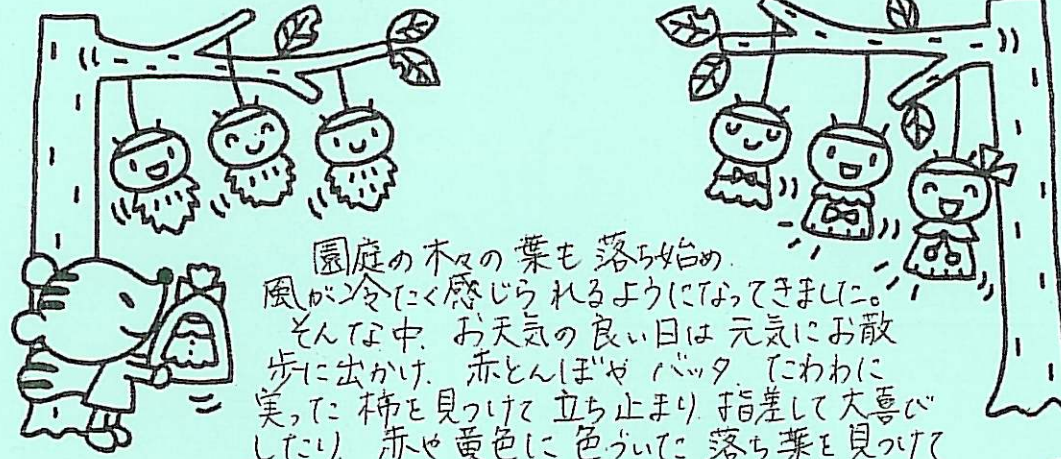 園庭の木々の葉も落ち始め、
風が冷たく感じられるようになってきました。
そんな中、お天気の良い日は元気にお散
歩に出かけ、赤とんぼやバッタ、たわわに
実った柿を見つけて立ち止まり、指差して大喜び
したり、赤や黄色に色づいた落ち葉を見つけて